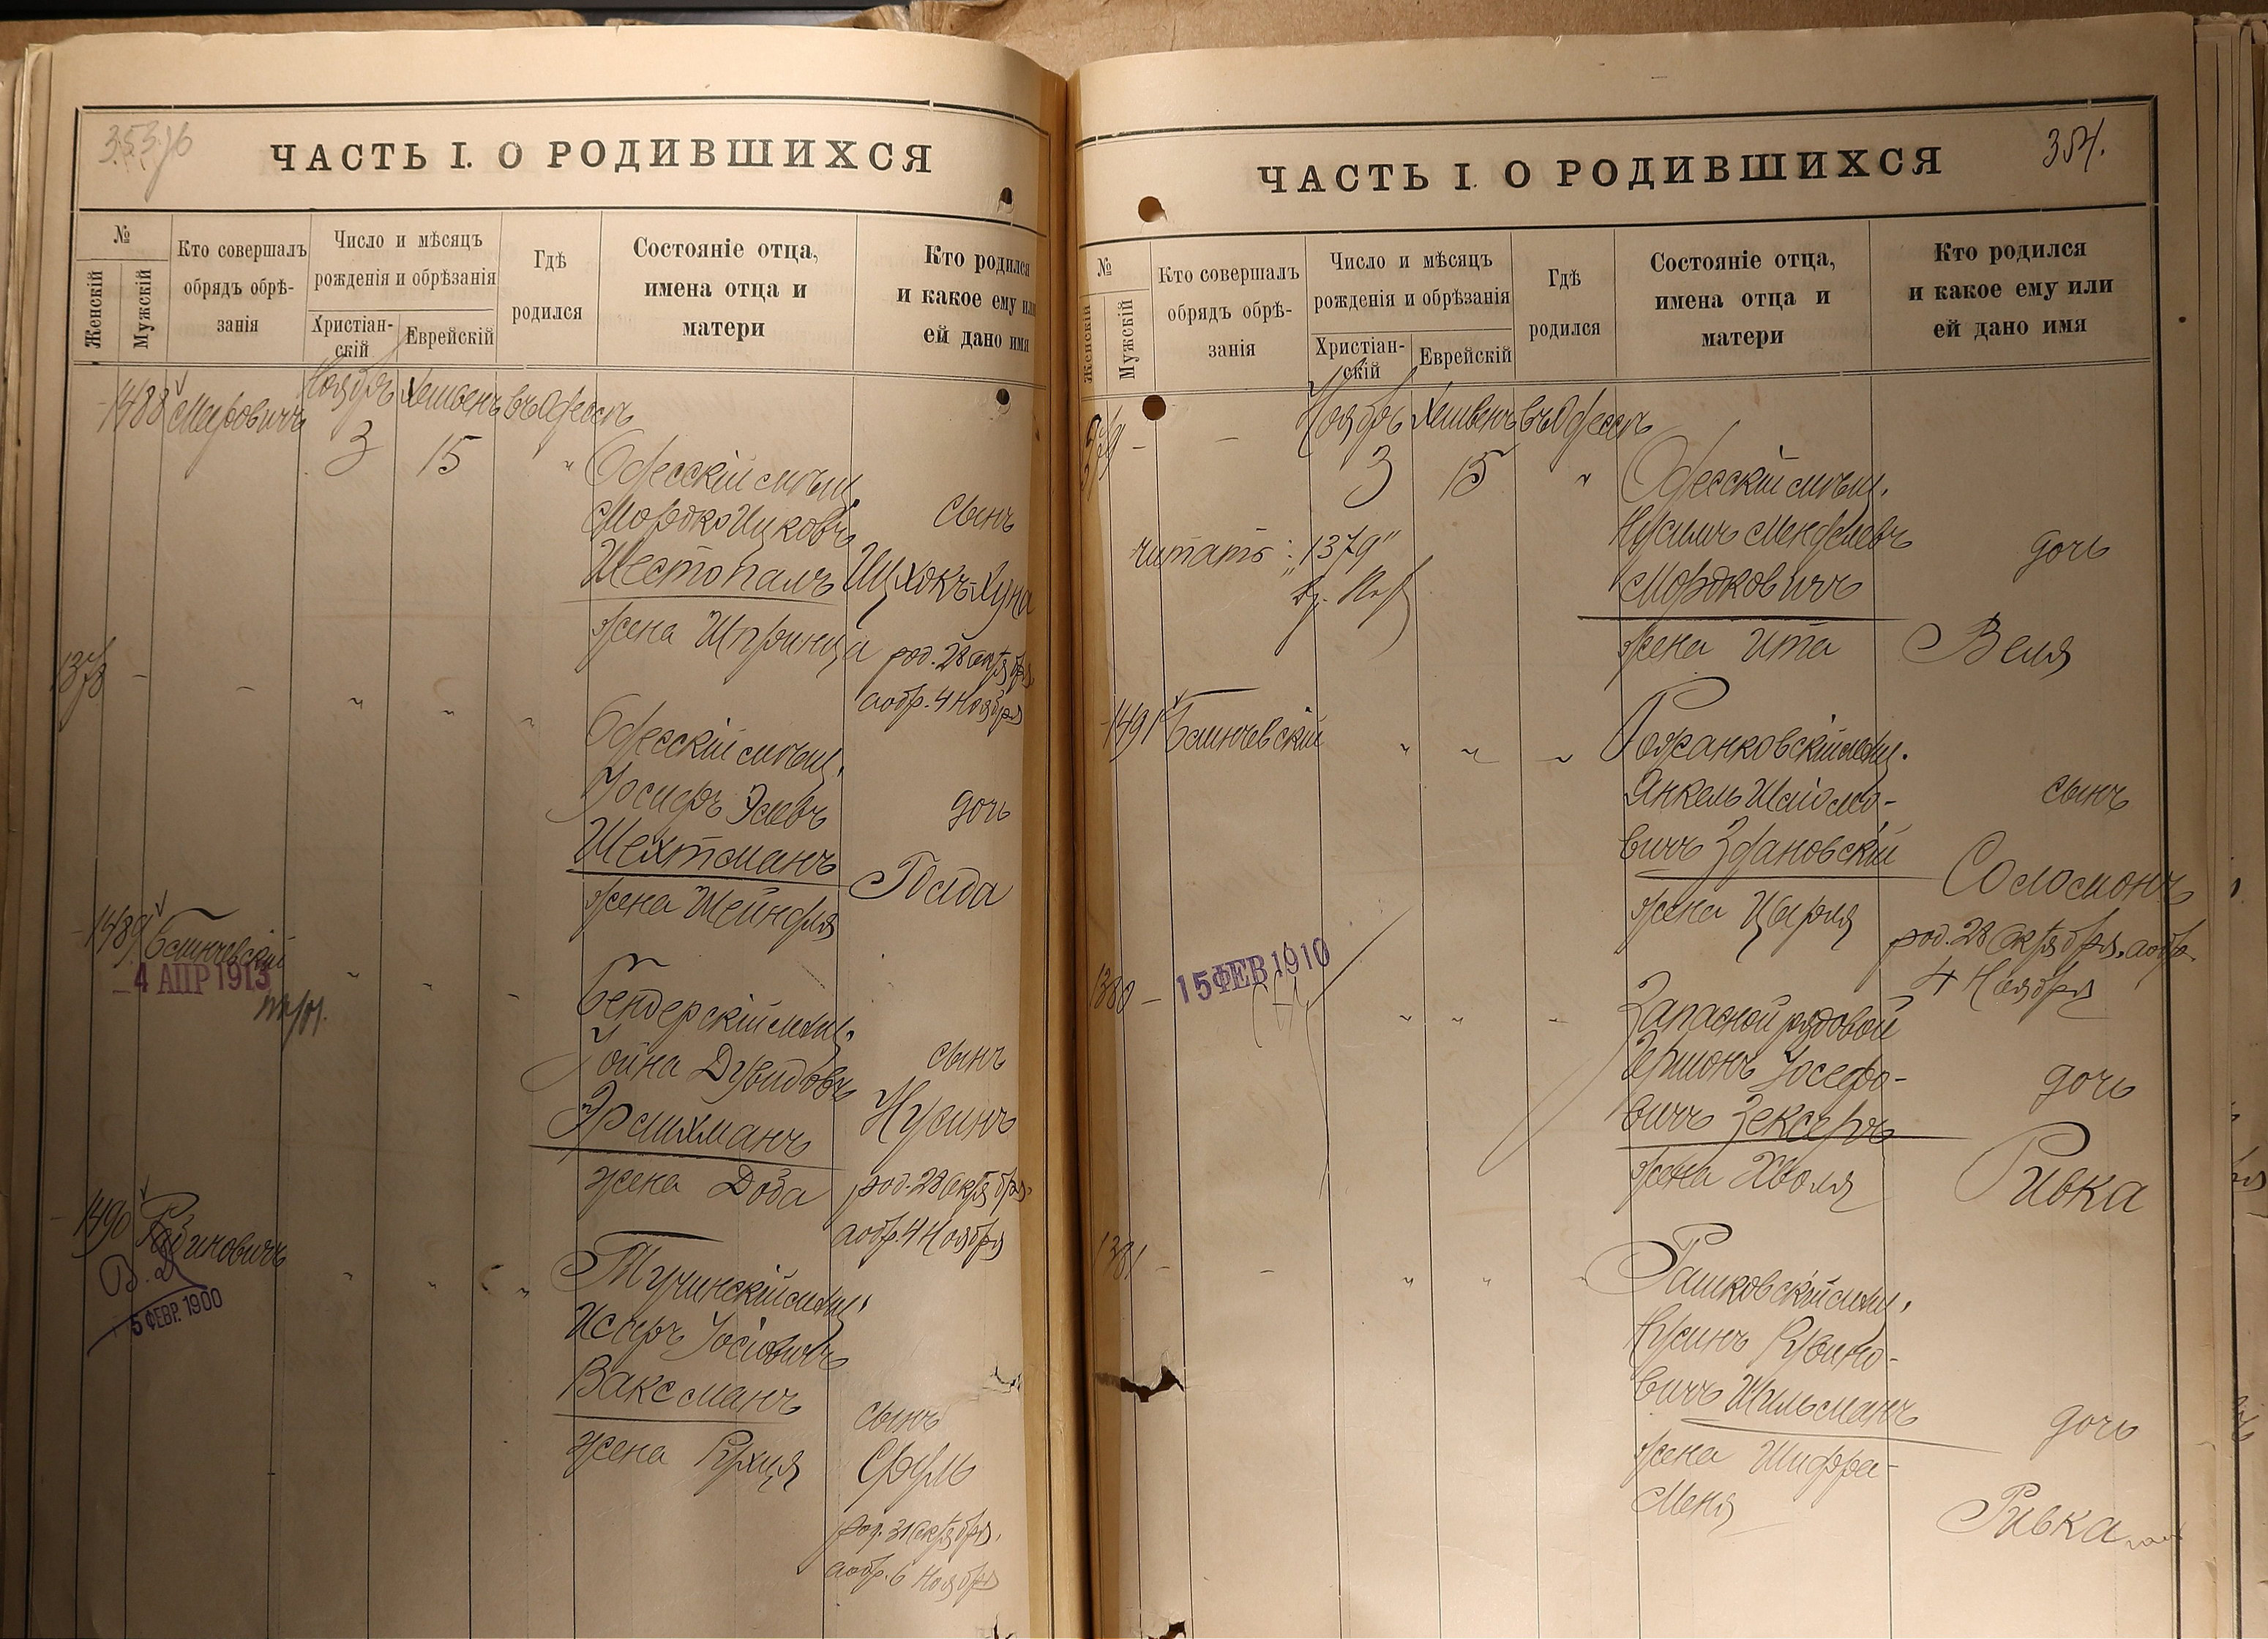 ЧАСТЬ I. О РОДИВШИХСЯ
№
Женскій
Мужскій
Кто совершалъ
обрядъ обрѣ-
занія
Число и мѣсяцъ
рожденія и обрѣзанія
Христіан-
скій
Еврейскій
Гдѣ
родился
Состояніе отца,
имена отца и
матери
Кто родился
и какое ему или
ей дано имя
1488 Меровичъ Ноябрь Хешвенъ въ Одессѣ
3 15 " Одесскій мѣщ.
Мордко Ицковъ сынъ
Шестопалъ Ицхокъ-Хуна
жена Шпринца род. 28 октября,
а обр. 4 Ноября
1378 - - " " " Одесскій мѣщ.
Іосифъ Эльевъ дочь
Шехтманъ
жена Шейндля
1489 " " " Бендерскій мѣщ.
4 АПР 1913
Іойна Дувидовъ сынъ
Нусинъ
жена Доба род. 28 октября,
а обр. 4 Ноября
1490 Рабиновичъ " " " Тучинскій мѣщ.
5 ФЕВР. 1900
Исеръ Іосіовичъ
Ваксманъ сынъ
жена Рухля Сруль
род. 31 октября,
а обр. 6 Ноября
ЧАСТЬ I. О РОДИВШИХСЯ
354.
№
Женскій
Мужскій
Кто совершалъ
обрядъ обрѣ-
занія
Число и мѣсяцъ
рожденія и обрѣзанія
Христіан-
скій
Еврейскій
Гдѣ
родился
Состояніе отца,
имена отца и
матери
Кто родился
и какое ему или
ей дано имя
- - Ноябрь Хешвенъ въ Одессѣ
3 15 " Одесскій мѣщ.
Нусимъ Менделевъ дочь
читать: "1379"
Мордковичъ
жена Ита Веля
1491 " " "
Янкель Шліомо- сынъ
вичъ Здановскій
Соломонъ
жена Цырля
род. 28 октября, а обр.
4 Ноября
1380 - 15 ФЕВ 1910 " " " Запасной рядовой
Гершонъ Іосефо- дочь
вичъ Зексеръ
жена Хволя Ривка
1381 - - " " " Рашковскій мѣщ.
Нусинъ Рувино-
вичъ Шильманъ дочь
жена Шифра-
Меня Ривка